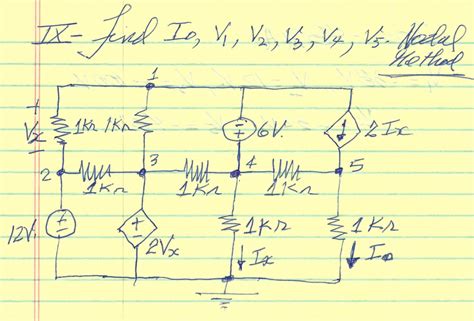 IX- find Io, V1, V2, V3, V4, V5. Nodal
Method
1
+
Vx
-
1kΩ 1kΩ
+
-
6V.
2Ix
2
1kΩ
3
1kΩ
4
1kΩ
5
12V.
+
-
+
-
2Vx
1kΩ
Ix
1kΩ
Io